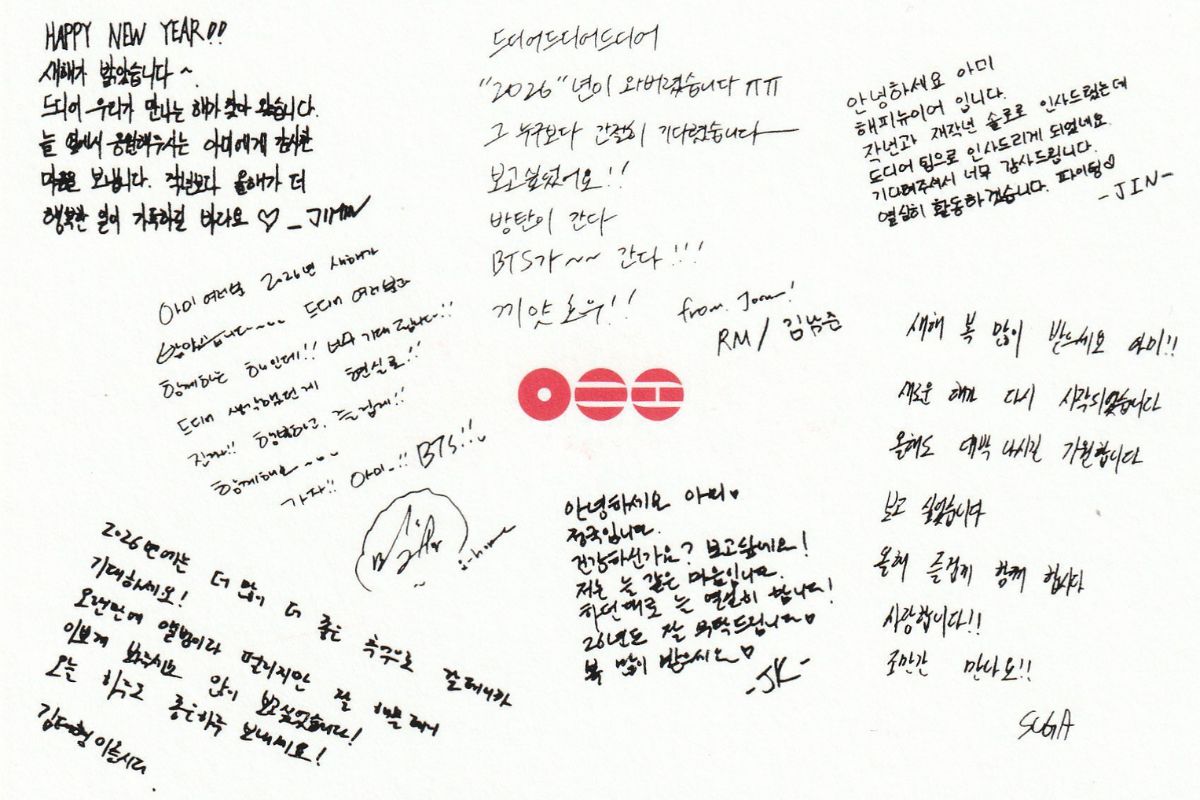 HAPPY NEW YEAR!!
새해가 밝았습니다~
드디어 우리가 만나는 해가 찾아 왔습니다.
늘 옆에서 응원해주시는 아미에게 감사한
마음을 보냅니다. 작년보다 올해가 더
행복한 일이 가득하길 바라요 ♡ -JIMIN
드디어드디어드디어
"2026"년이 와버렸습니다 ㅠㅠ
그 누구보다 간절히 기다렸습니다
보고싶었어요!!
방탄이 간다
BTS가~~ 간다!!!
끼얏호우!!
from. Joon!
RM / 김남준
안녕하세요 아미
해피뉴이어 입니다.
작년과 재작년 솔로로 인사드렸는데
드디어 팀으로 인사드리게 되었네요.
기다려주셔서 너무 감사드립니다.
열심히 활동하겠습니다. 파이팅♡
-JIN-
아미 여러분 2026년 새해가
밝았습니다~~~ 드디어 여러분과
함께하는 해인데!! 너무 기대됩니다!!
드디어 생각했던게 현실로!!
진짜!! 행복하고, 즐겁게!!
함께해요~~~
가자!! 아미~!! BTS!!
j-hope
새해 복 많이 받으세요 아미!!
새로운 해가 다시 시작되었습니다
올해도 대박 나시길 기원합니다
보고 싶었습니다
올해 즐겁게 함께 합시다
사랑합니다!!
조만간 만나요!!
SUGA
2026년에는 더 많이 더 좋은 추억으로 갈테니까
기대하세요!
오랜만에 앨범이라 떨리지만 잘 해볼테니
이쁘게 봐주시요 많이 보고싶었습니다!
오늘 하루도 좋은하루 보내세요!
김태형이올시다.
안녕하세요 아미♥
정국입니다.
건강하신가요? 보고싶네요!
저는 늘 같은 마음입니다.
하던대로 늘 열심히 합니다!
26년도 잘 부탁드립니다♥
복 많이 받으세요♥
-JK-